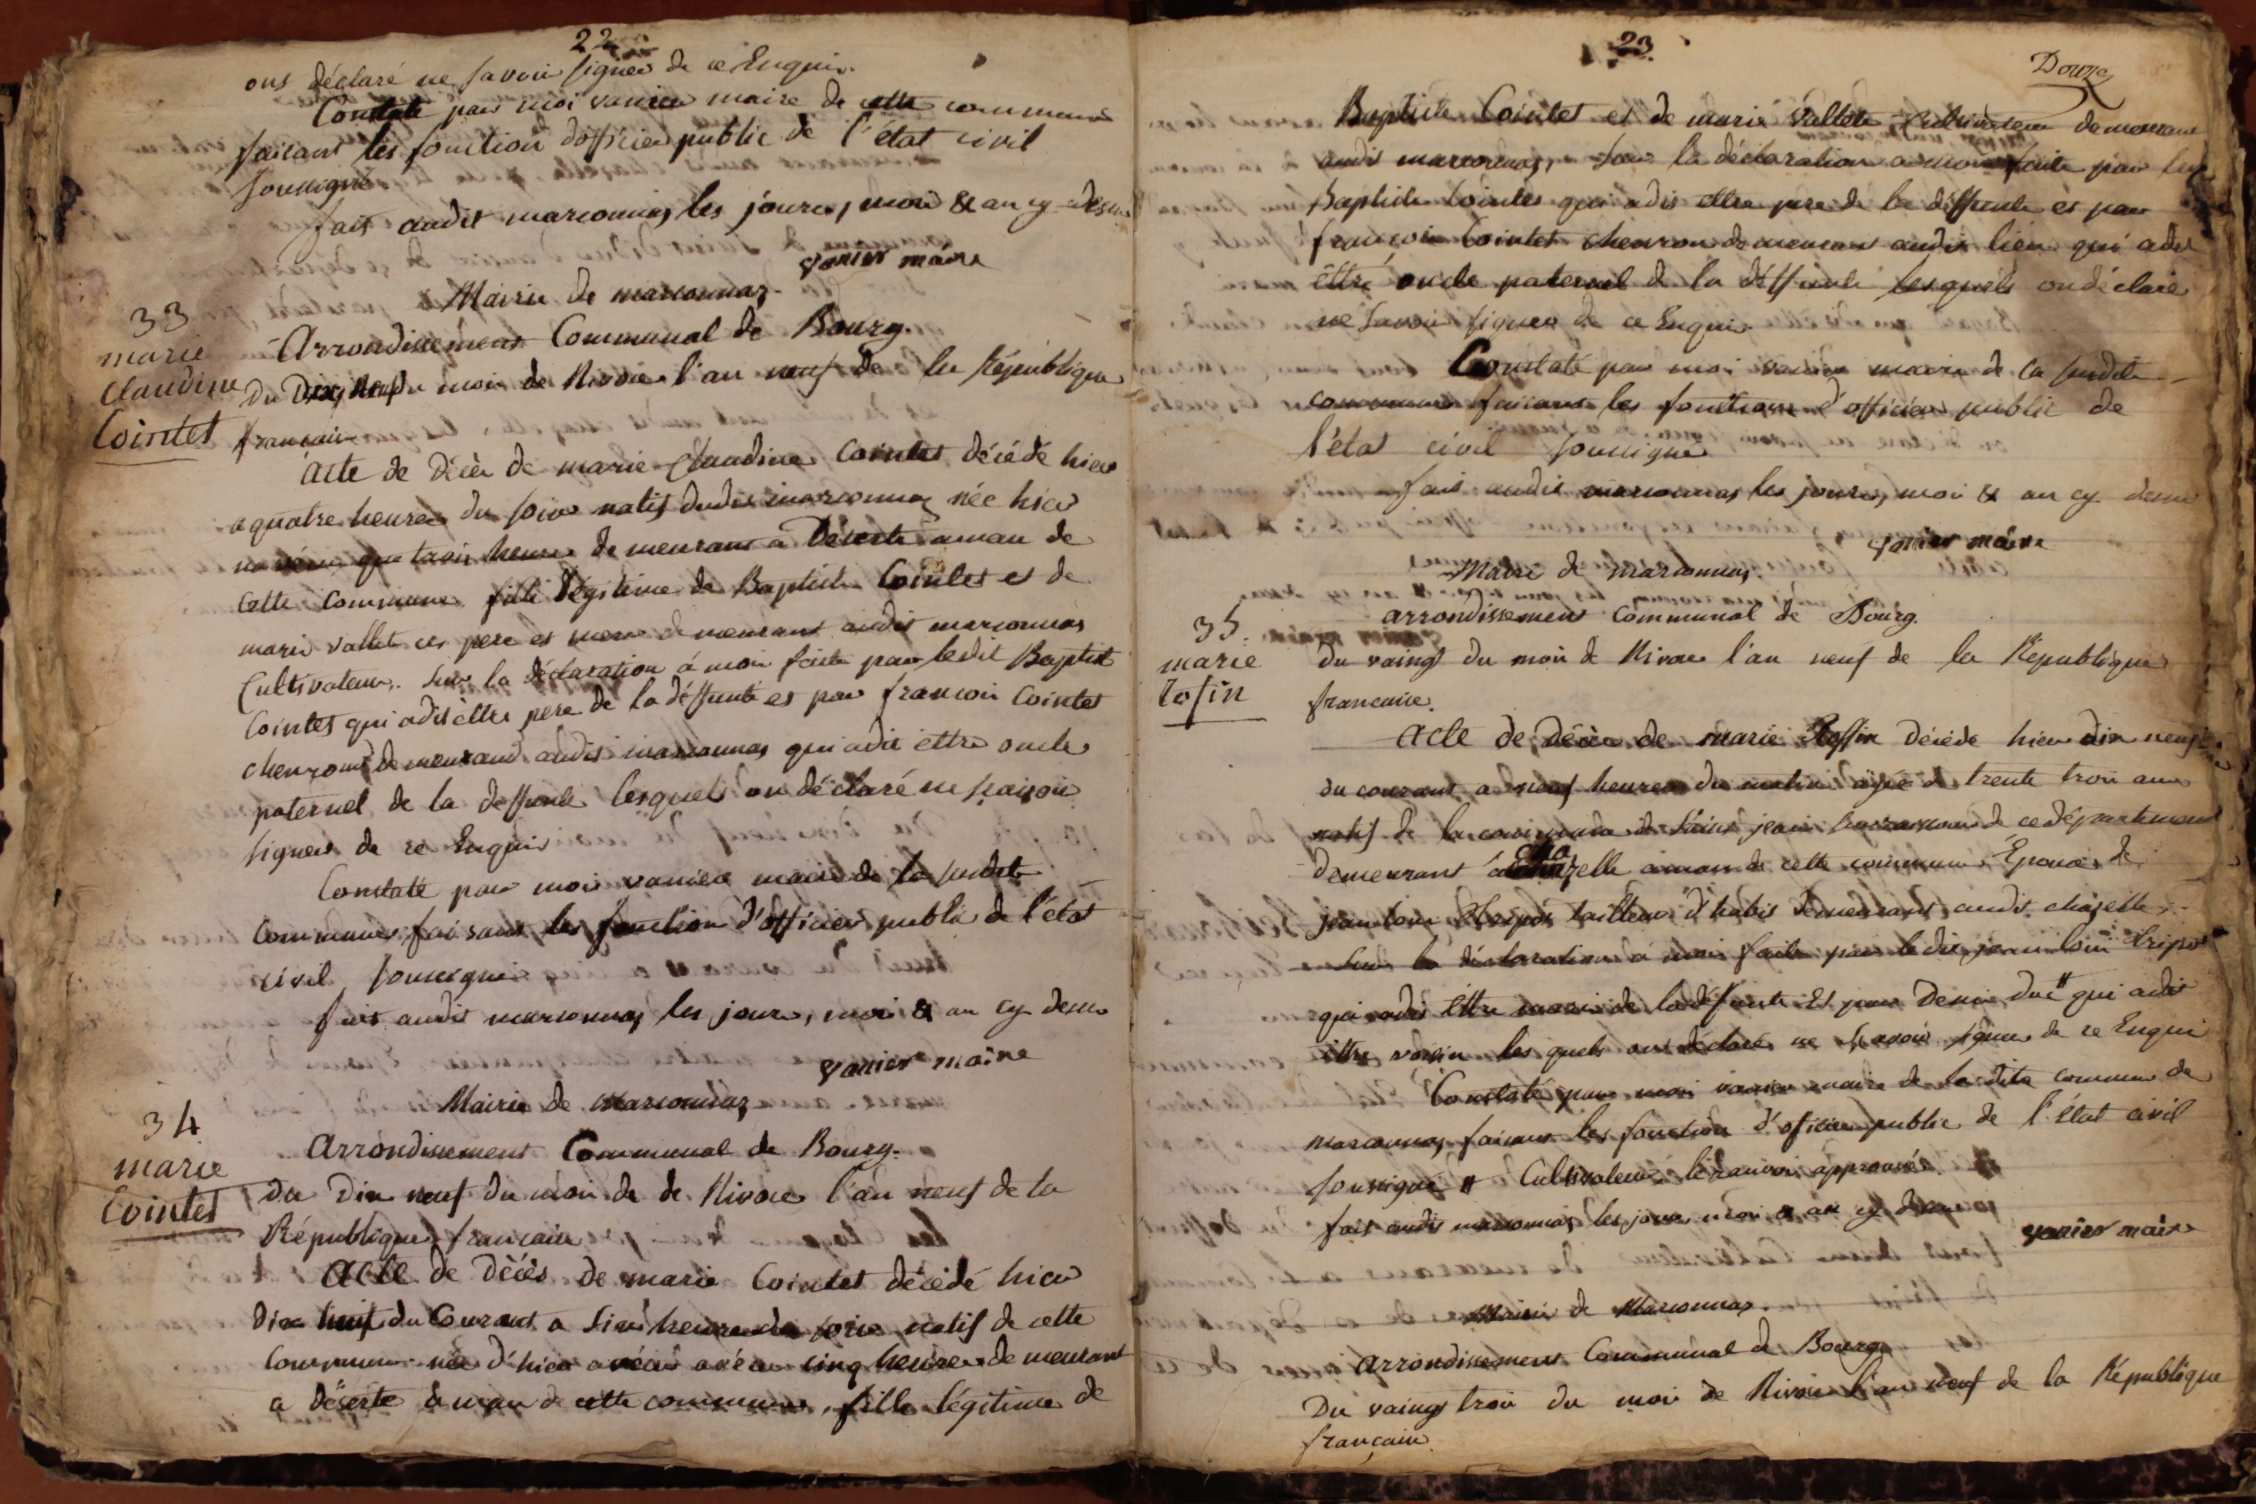 22
ons déclaré ne savoir signer de ce Enquis.
Constaté par moi vanier maire de cette commune
faisant les fonction d'officier public de l'état civil
soussigné
fait audit marsonnas les jours, mois & an cy dessus
vanier maire
Mairie de marsonnas
33
marie
Claudine
Cointet
Arrondissement Communal de Bourg.
Du Dix neuf du mois de Nivose l'an neuf de la République
française
Acte de Décès de marie Claudine Cointet décédé hier
a quatre heures du soir natif dudit marsonnas née hier
que trois heures demeurant a Déserte amau de
cette Commune fille légitime de Baptiste Cointet et de
marie vallet ces pere et mere demeurant audit marsonnas
Cultivateur. Sur la déclaration à moi faite par ledit Baptiste
Cointet qui adit ettre pere de la déffunte et par françois Cointet
demeurand audit marsonnas qui adit ettre oncle
paternel de la deffunte lesquels on déclaré ne savoir
signer de ce Enquis
Constaté par moi vanier maire de la susdite
commune faisant les fonction d'officier public de l'état
civil soussigné
fait audit marsonnas les jours, mois & an cy dessus
vanier maire
Mairie de Marsonnas
34
marie
Cointet
Arrondissement Communal de Bourg.
Du Dix neuf du mois de de Nivose l'an neuf de la
République française
Acte de Décès de marie Cointet décédé hier
Dix huit du Courant a Six heure du soir natif de cette
Commune née d'hier avécu cinq heures demeurant
a déserte amau de cette commune, fille légitime de
23
Douze
Baptiste Cointet et de marie Vallet Cultivateur demeurant
audit marsonnas, Sur la déclaration a moi faite par
Baptiste Cointet qui adit ettre pere de la déffunte et par
françois Cointet demeurant audit lieu qui adit
ettre oncle paternel de la déffunte lesquels on déclaré
ne Savoir signer de ce Enquis
Constaté par moi vanier maire de la susdite
commune faisant les fonctions d'officier public de
l'état civil soussigné
fait audit marsonnas les jours, mois & an cy dessus
vanier maire
Mairie de marsonnas
35
marie
rosin
arrondissement Communal de Bourg.
Du vaingt du mois de Nivose l'an neuf de la République
française.
Acte de Décès de marie Rossin décédé hier dix neuf
du courant a neuf heures du matin agée de trente trois ans
natif de la commune de Saint jean de ce département
demeurant a chazelle amau de cette commune Épouse de
jean louis tripoz tailleur d'habit demeurant audit chazelle
Sur la déclaration à moi faite par le dit jean louis tripoz
qui adit être mari de la déffunte Et par Denis Duc # qui adit
ettre voisin les quels ont déclaré ne Savoir signer de ce Enquis
Constaté par moi vanier maire de la dite commune de
marsonnas faisant les fonction d'officier public de l'état civil
soussigné # Cultivateur le ranvoi approuvé
fait audit marsonnas les jours mois & an cy dessus
vanier maire
Mairie de Marsonnas.
arrondissement Communal de Bourg
Du vaingt trois du mois de Nivose l'an neuf de la République
française